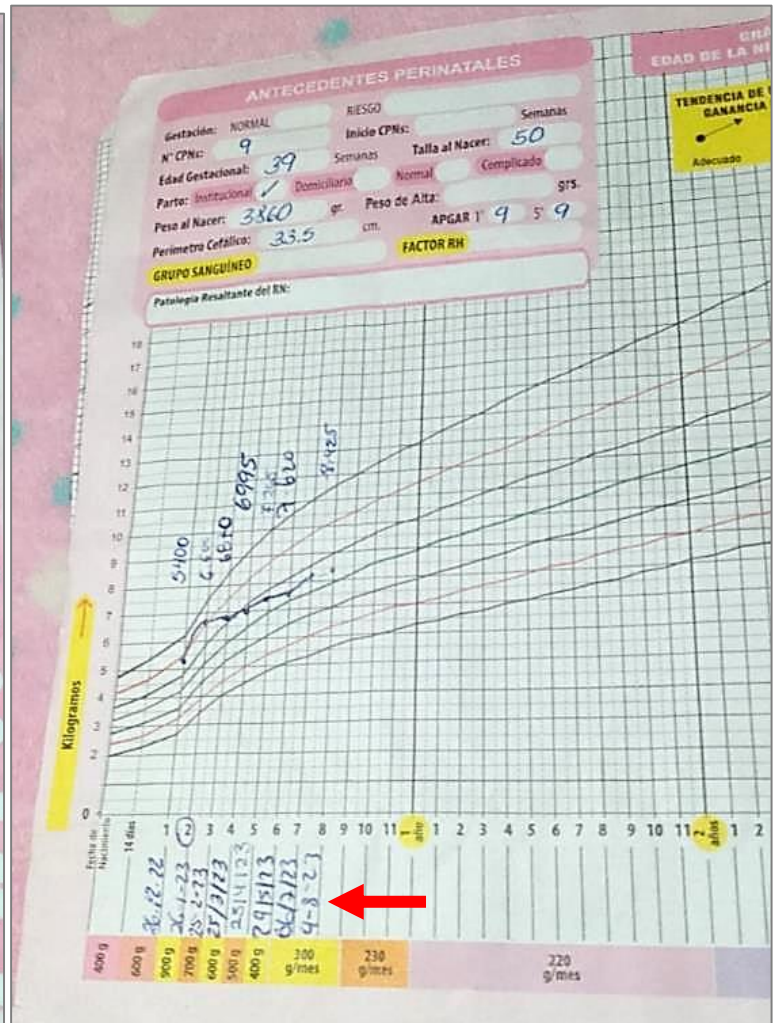 ANTECEDENTES PERINATALES
Gestación: NORMAL RIESGO
N° CPNs: 9 Inicio CPNs: Semanas
Edad Gestacional: 39 Semanas Talla al Nacer: 50
Parto: Institucional ✓ Domiciliario Normal Complicado
Peso al Nacer: 3860 gr. Peso de Alta: grs.
Perímetro Cefálico: 33.5 cm. APGAR 1' 9 5' 9
GRUPO SANGUÍNEO FACTOR RH
Patología Resaltante del RN:
EDAD DE LA
TENDENCIA DE
GANANCIA
Adecuado
18
17
16
15
14
13
12
11
10
9
8
7
6
5
4
3
2
0
Kilogramos
5400
6995
7 620
8.425
Fecha de Nacimiento 14 días 1 2 3 4 5 6 7 8 9 10 11 1 año 1 2 3 4 5 6 7 8 9 10 11 2 años 1 2
26.12.22
25-2-23
25/3/23
25/4/23
29/5/23
06/7/23
4-8-23
400 g 600 g 900 g 700 g 600 g 500 g 400 g 300 g/mes 230 g/mes 220 g/mes